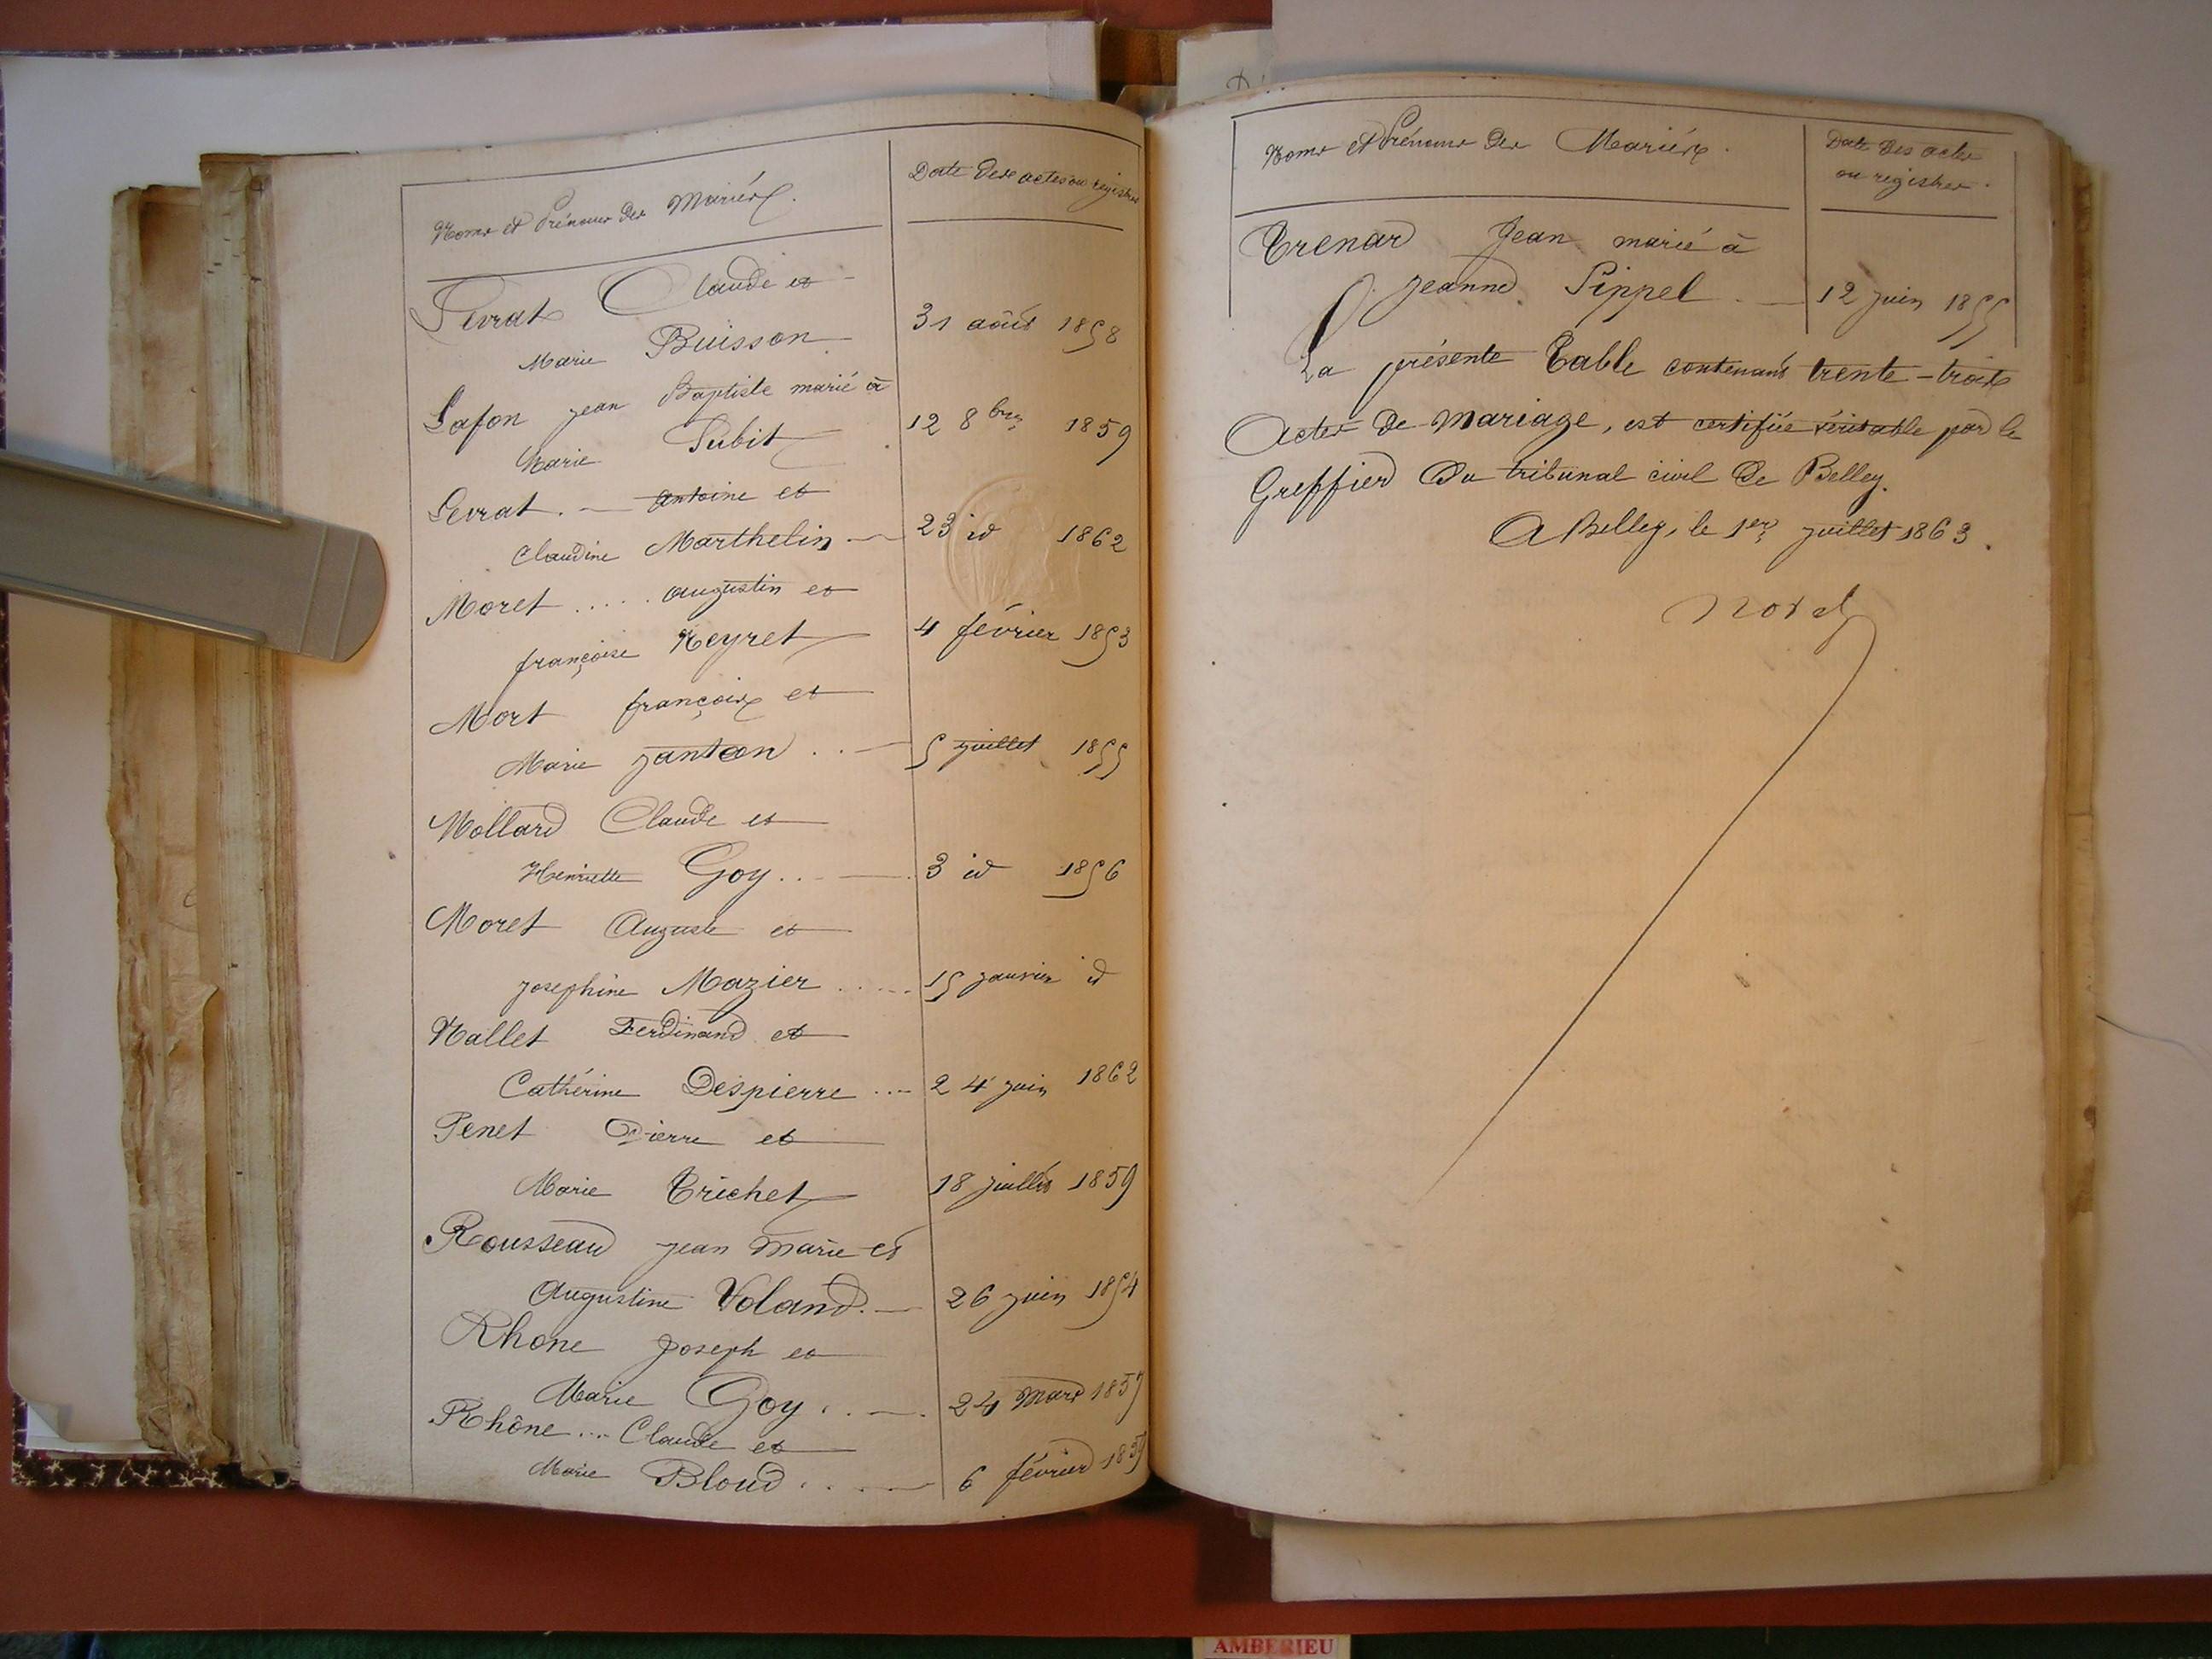 Noms et Prénoms des Mariés.
Date des actes au registre
Levrat Claude et
Marie Buisson
31 août 1858
Lafon Jean Baptiste marié à
Marie Subit
12 8bre 1859
Levrat. — Antoine et
Claudine Marthelin —
23 id 1862
Moret ..... Augustin et
françoise Neyret
4 février 1853
Mort françois et
Marie Janton ..
5 juillet 1855
Mollard Claude et
Henriette Goy...
3 id 1856
Moret Auguste et
Josephine Mazier .....
15 janvier id
Nallet Ferdinand et
Cathérine Despierre ....
24 juin 1862
Penet Pierre et
Marie Trichet
18 juillet 1859
Rousseau Jean Marie et
Augustine Voland. —
26 juin 1854
Rhone Joseph et
Marie Goy . . —
24 Mars 1857
Rhône ... Claude et
Marie Bloud . . . .
6 février
Noms et Prénoms des Mariés.
Date des actes
au registre.
Trenard Jean marié à
Jeanne Pippel . —
12 juin 1855
La présente Table contenant trente-trois
Actes de Mariage, est certifiée véritable par le
Greffier du tribunal civil de Belley.
A Belley, le 1er juillet 1863.
AMBERIEU